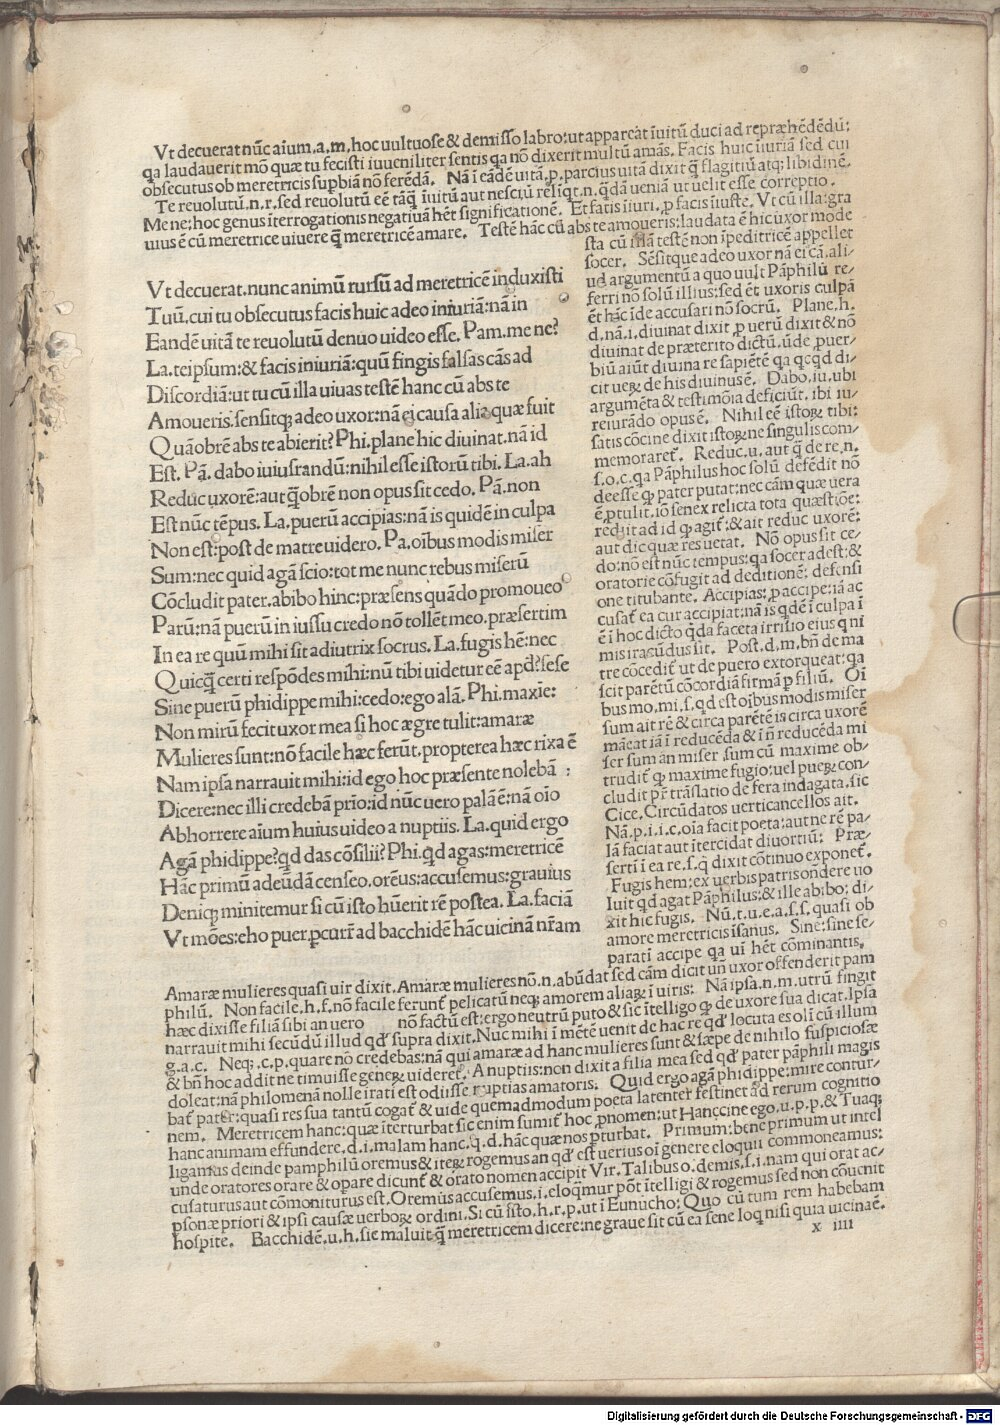 Vt decuerat nūc aīum,a,m,hoc uultuose & demisso labro:ut appareat īuitū duci ad repræhēdēdū:
qa laudauerit mō quæ tu fecisti iuueniliter sentis qa nō dixerit multū amās. Facis huic iiuriā sed cui
obsecutus ob meretricis supbiā nō ferēdā. Nā ī eādē uitā,p,parcius uitā dixit q̄ flagitiū atq; libidinē.
Te reuolutū.n,r,sed reuolutū eē tāq̄ īuitū aut nesciū reliqt.n.q̄dā ueniā ut uelit esse correptio.
Me ne:hoc genus īterrogationis negatiuā hēt significationē. Et facis iiuri,p facis iiuste. Vt cū illa:gra
uius ē cū meretrice uiuere q̄ meretricē amare. Testē hāc cū abs te amoueris:laudata ē hic uxor mode
Vt decuerat.nunc animū rursū ad meretricē induxisti
Tuū.cui tu obsecutus facis huic adeo iniuriā:nā in
Eandē uitā te reuolutū denuo uideo esse. Pam.me ne?
La.te ipsum:& facis iniuriā:quū fingis falsas cās ad
Discordiā:ut tu cū illa uiuas testē hanc cū abs te
Amoueris.sensitq; adeo uxor:nā ei causa alia quæ fuit
Quāobrē abs te abierit? Phi.plane hic diuinat.nā id
Est. Pā. dabo iuiusrandū:nihil esse istorū tibi. La.ah
Reduc uxorē:aut q̄obrē non opus sit cedo. Pā.non
Est nūc tēpus. La.puerū accipias:nā is quidē in culpa
Non est:post de matre uidero. Pa.oībus modis miser
Sum:nec quid agā scio:tot me nunc rebus miserū
Cōcludit pater.abibo hinc:præsens quādo promoueo
Parū:nā puerū in iussu credo nō tollēt meo.præsertim
In ea re quū mihi sit adiutrix socrus. La.fugis hē:nec
Quicq̄ certi respōdes mihi:nū tibi uidetur eē apd?sese
Sine puerū phidippe mihi:cedo:ego alā. Phi.maxīe:
Non mirū fecit uxor mea si hoc ægre tulit:amaræ
Mulieres sunt:nō facile hæc ferūt.propterea hæc rixa ē
Nam ipsa narrauit mihi:id ego hoc præsente nolebā :
Dicere:nec illi credebā prīo:id nūc uero palā ē:nā oīo
Abhorrere aīum huius uideo a nuptiis. La.quid ergo
Agā phidippe?qd das cōsilii? Phi.qd agas:meretricē
Hāc primū adeūdā censeo.orēus:accusemus:grauius
Deniq; minitemur si cū isto hūerit rē postea. La.faciā
Vt mōes:eho puer,pcurr ad bacchidē hāc uicinā nr̄am
sta cū illā testē non īpeditricē appellet
socer. Sēsitque adeo uxor nā ei cā,ali/
ud argumētū a quo uult Pāphilū re/
ferri nō solū illius:sed ēt uxoris culpā
ēt hāc īde accusari nō socrū. Plane,h.
d,nā,i,diuinat dixit,p uerū dixit & nō
diuinat de præterito dictū,ūde,puer/
biū aiūt diuina re sapiētē qa qcqd di/
cit uerꝝ de his diuinusē. Dabo,iu,ubi
argumēta & testimōia deficiūt, ibi iu/
reiurādo opus ē. Nihil eē istorꝝ tibi:
satis cōcine dixit istorꝝ ne singulis com/
memoraret̄. Reduc,u,aut q̄ de re,n.
s,o,c,qa Pāphilus hoc solū defēdit nō
deesse q̄ pater putat:nec cām quæ uera
ē,ptulit,iō senex relicta tota quæstiōe:
redijt ad id q̄ agit̄:& ait reduc uxorē:
aut dic quæ res uetat. Nō opus sit ce/
do:nō est nūc tempus:qa socer adest:&
oratorie cōfugit ad deditionē: defensi
one titubante. Accipias:p accipe:iā ac
cusat̄ ea cur accipiat:nā is qdē ī culpa ī
ē ī hoc dicto q̄da faceta irrisio eius q ni
mis iracūdus sit. Post,d,m,bn̄ de ma
tre cōcedit̄ ut de puero extorqueat:qa
scit parētū cōcordiā firmā p filiū. Oī
bus mo,mi,s,qd est oībus modis miser
sum ait rē & circa parētē is circa uxorē
mācat iā ī reducēda & ī n̄ reducēda mi
ser sum an miser,sum cū maxime ob/
trudit̄ q̄ maxime fugio:uel puerꝝ con/
cludit pr̄ trāslatio de fera indagata,sic
Cice,Circūdatos uerticancellos ait.
Nā,p,i,i,c,oīa facit poeta:aut ne rē pa/
lā faciat aut itercidat diuortiū: Præ/
serti ī ea re,s,q̄ dixit cōtinuo exponet̄.
Fugis hem:ex uerbis patris ondere uo
luit qd agat Pāphilus:& ille abibo: di/
xit hic fugis. Nū,t,u,e,a,s,s,quasi ob
amore meretricis īsanus. Sine:sine se/
parati accipe qa uī hēt cōminantis.
Amaræ mulieres quasi uir dixit.Amaræ mulieres nō.n.abūdat sed cām dicit un̄ uxor offenderit pam
philū. Non facile,h,f,nō facile ferunt̄ pelicatū neq; amorem aliarꝝ ī uiris: Nā ipsa.n.m.utrū fingit
hæc dixisse filiā sibi an uero nō factū est:ergo neutrū puto & sic ītelligo q̄ de uxore sua dicat.Ipsa
narrauit mihi secūdū illud qd̄ supra dixit.Nuc mihi ī mētē uenit de hac re qd̄ locuta es olī cū illum
g,a,c. Neq;,c,p,quare nō credebas:nā qui amaræ ad hanc mulieres sunt & sæpe de nihilo suspiciosæ
& bn̄ hoc addit ne timuisse generꝝ uideret̄. A nuptiis:non dixit a filia mea sed qd̄ pater pāphili magis
doleat:nā philomenā nolle irati est odiisse nuptias amatoris. Quid ergo agā phidippe:mire contur/
bat̄ pater:quasi res sua tantū cogat̄ & uide quemadmodum poeta latenter festinet ad rerum cognitio
nem. Meretricem hanc:quæ iterturbat sic enim sumit̄ hoc,pnomen:ut Hanccine ego,u,p,p,& Tuaq;
hanc animam effundere,d,i,malam hanc,q,d,hāc quæ nos pturbat. Primum:bene primum ut intel
ligamus deinde pamphilū oremus & iterꝝ rogemus an qd̄ est uerius oī genere eloquii commoneamus:
unde oratores orare & opare dicunt̄ & orato nomen accipit Vir. Talibus o:demis,s,i,nam qui orat ac/
cusaturus aut cōmoniturus est.Oremus accusemus,i,eloqmur pōt ītelligi & rogemus sed non cōuenit
psonæ priori & ipsi causæ uerborꝝ ordini.Si cū isto,h,r,p,ut ī Eunucho: Quo cū tum rem habebam
hospite. Bacchidē,u,h,sic maluit q̄ meretricem dicere:ne graue sit cū ea sene loq nisi quia uicinaē.
x iiii
Digitalisierung gefördert durch die Deutsche Forschungsgemeinschaft - DFG